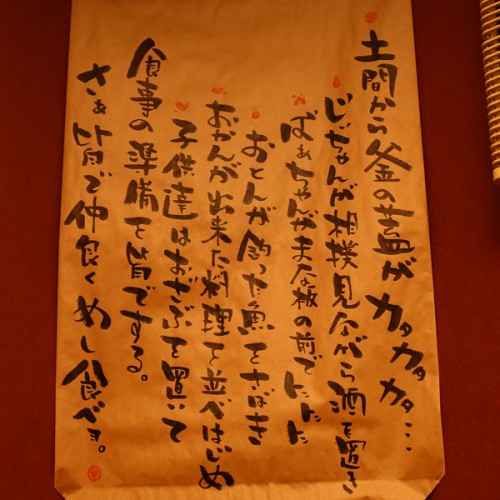 土間から釜の蓋がカタカタカタ…
じいちゃんが相撲見ながら酒を置き
ばぁちゃんがまな板の前でトントントン
おとんが釣った魚をさばき
おかんが出来た料理を並べはじめ
子供達はおざぶを置いて
食事の準備を皆でする。
さぁ皆で仲良くめし食べョ。